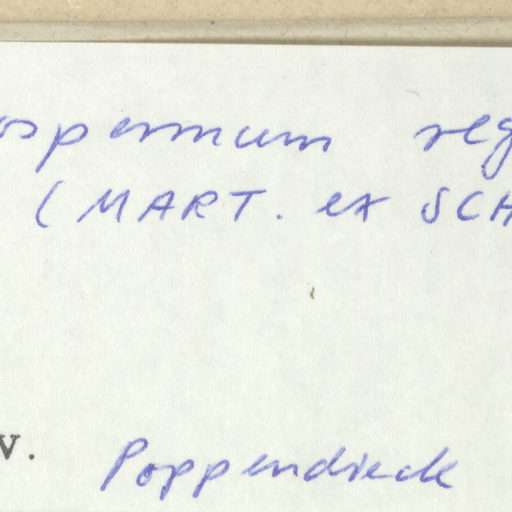 ospermum reg
(MART. ex SCH
v. Poppendieck